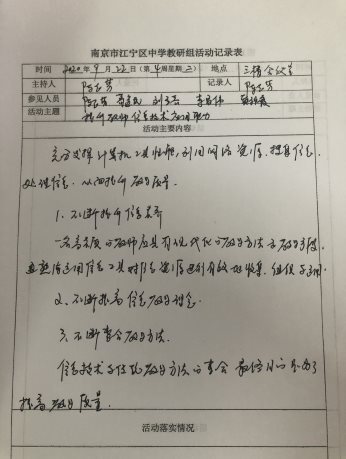 南京市江宁区中学教研组活动记录表
时间 2020年9月22日(第4周星期二) 地点 三楼会议室
主持人 记录人
参见人员
活动主题 提升教师信息技术应用能力
活动主要内容
充分发挥计算机工具性能,利用网络资源,搜集信息,
处理信息,从而提升教学质量。
1、不断提升信息素养
一名高素质的教师应具有现代化的教学方法及教学手段,
并熟练运用信息工具对信息资源进行有效地收集、组织、运用
2、不断提高信息教学理念。
3、不断整合教学方法。
信息技术与传统教学方法的整合 最终目的是为了
提高教学质量
活动落实情况